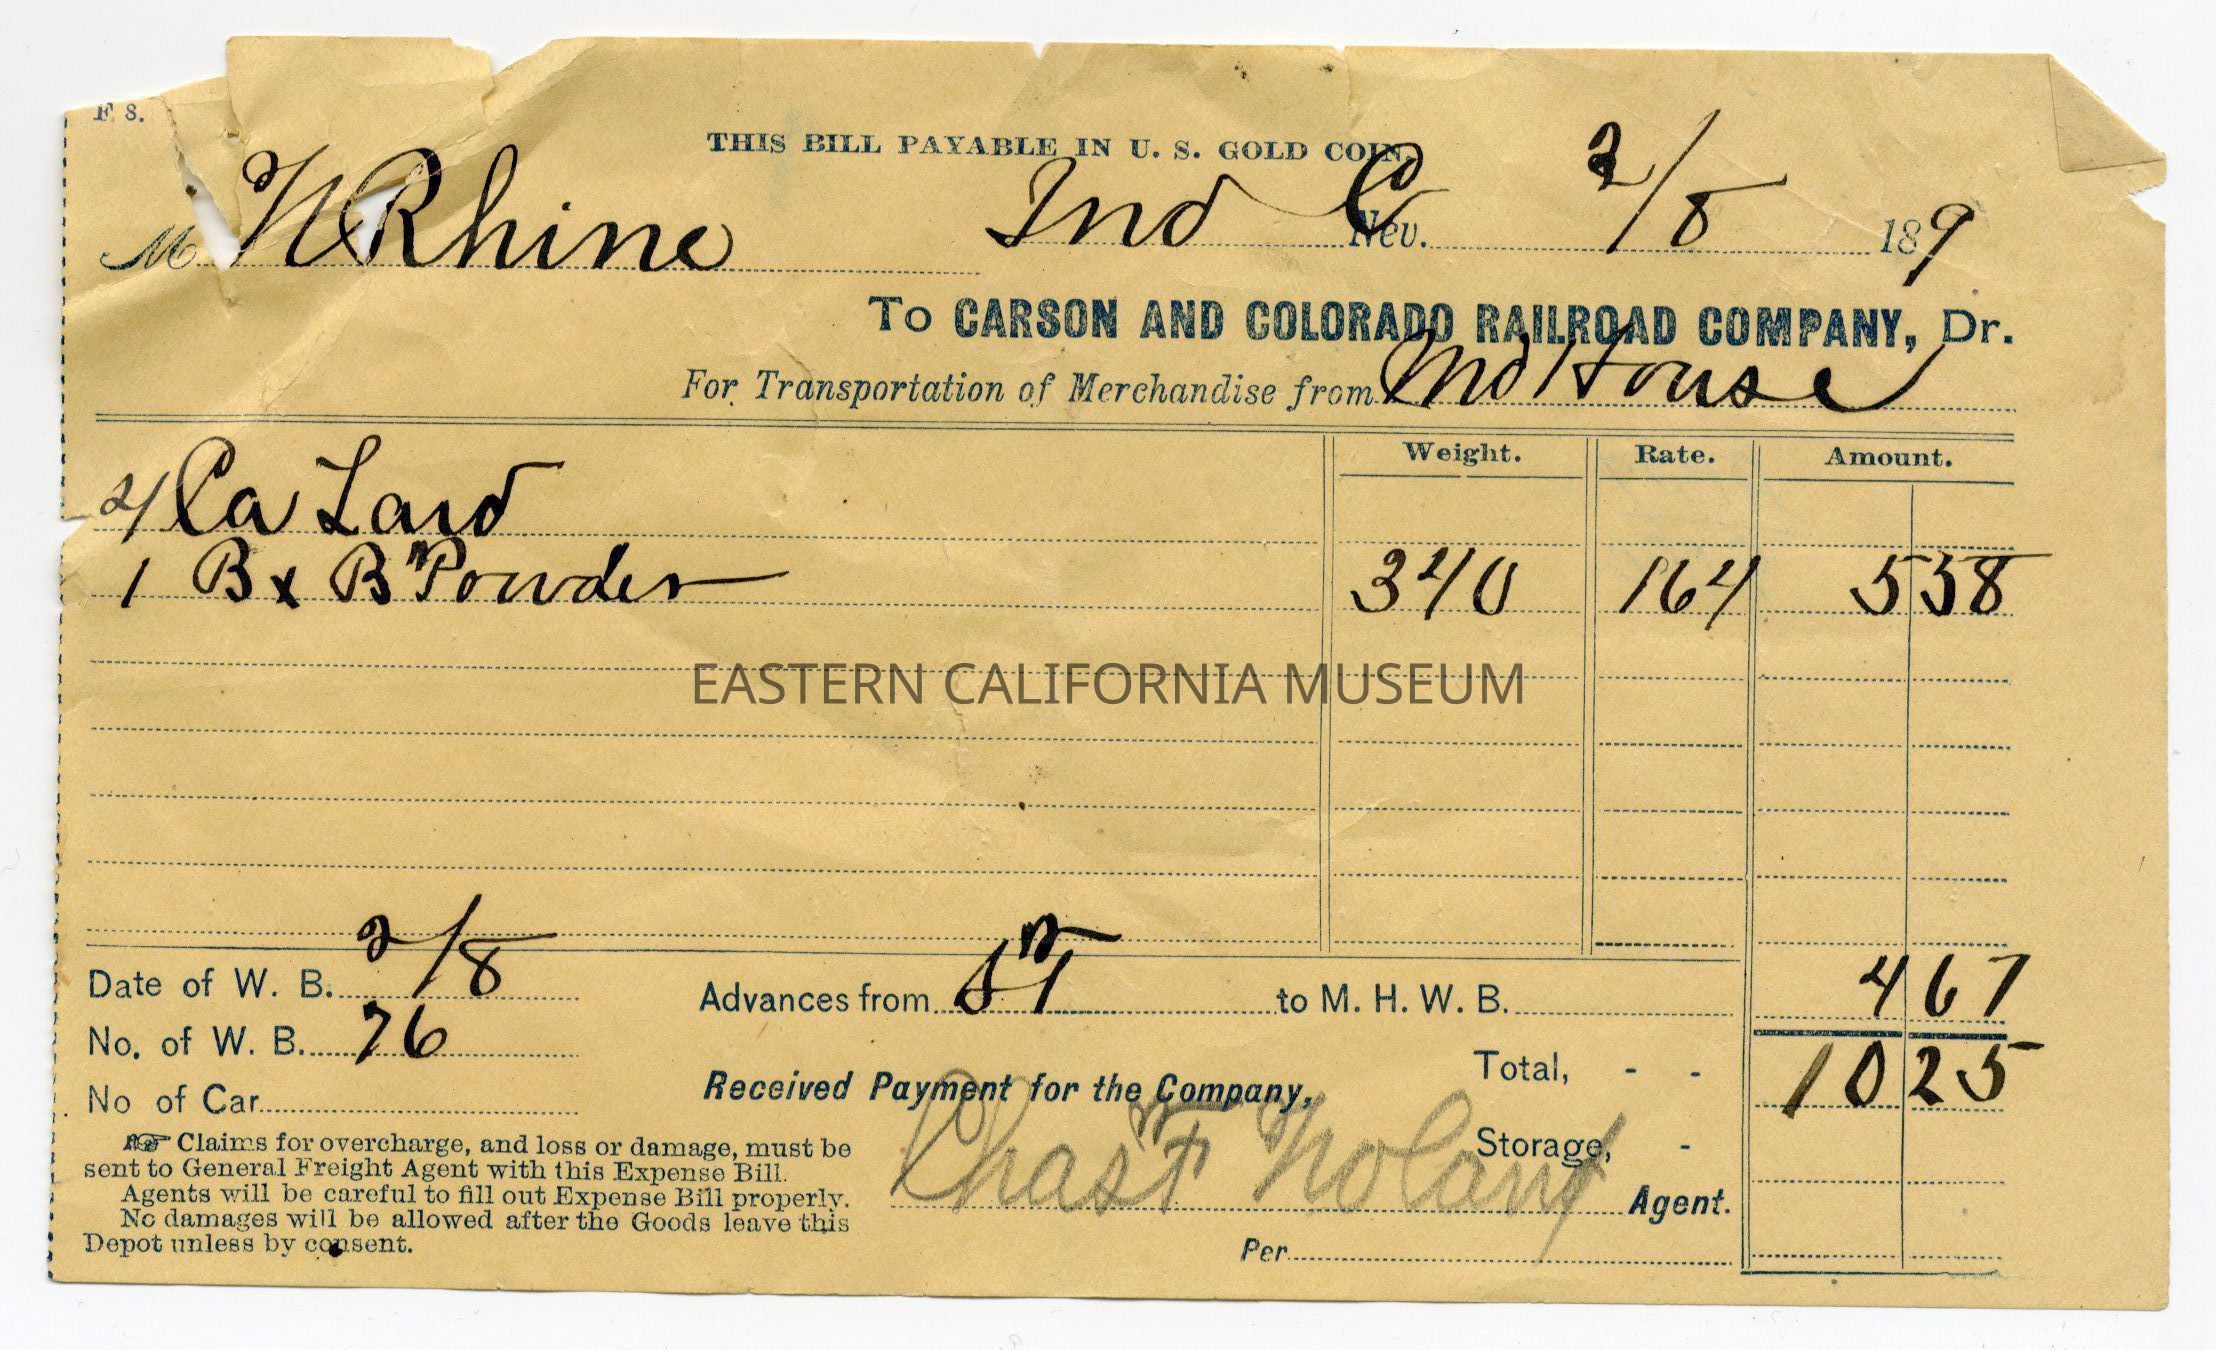 F 8.
THIS BILL PAYABLE IN U. S. GOLD COIN.
M N Rhine Ind C Nev. 2/8 189
To CARSON AND COLORADO RAILROAD COMPANY, Dr.
For Transportation of Merchandise from Md House
Weight. Rate. Amount.
4 Ca Lard
1 Bx B Powder 340 164 5 58
EASTERN CALIFORNIA MUSEUM
4 67
Date of W. B. 2/8 Advances from to M. H. W. B.
No. of W. B. 76
Total, - - 10 25
No of Car
Received Payment for the Company,
Storage, -
Chas T Agent.
Per
Claims for overcharge, and loss or damage, must be
sent to General Freight Agent with this Expense Bill.
Agents will be careful to fill out Expense Bill properly.
No damages will be allowed after the Goods leave this
Depot unless by consent.